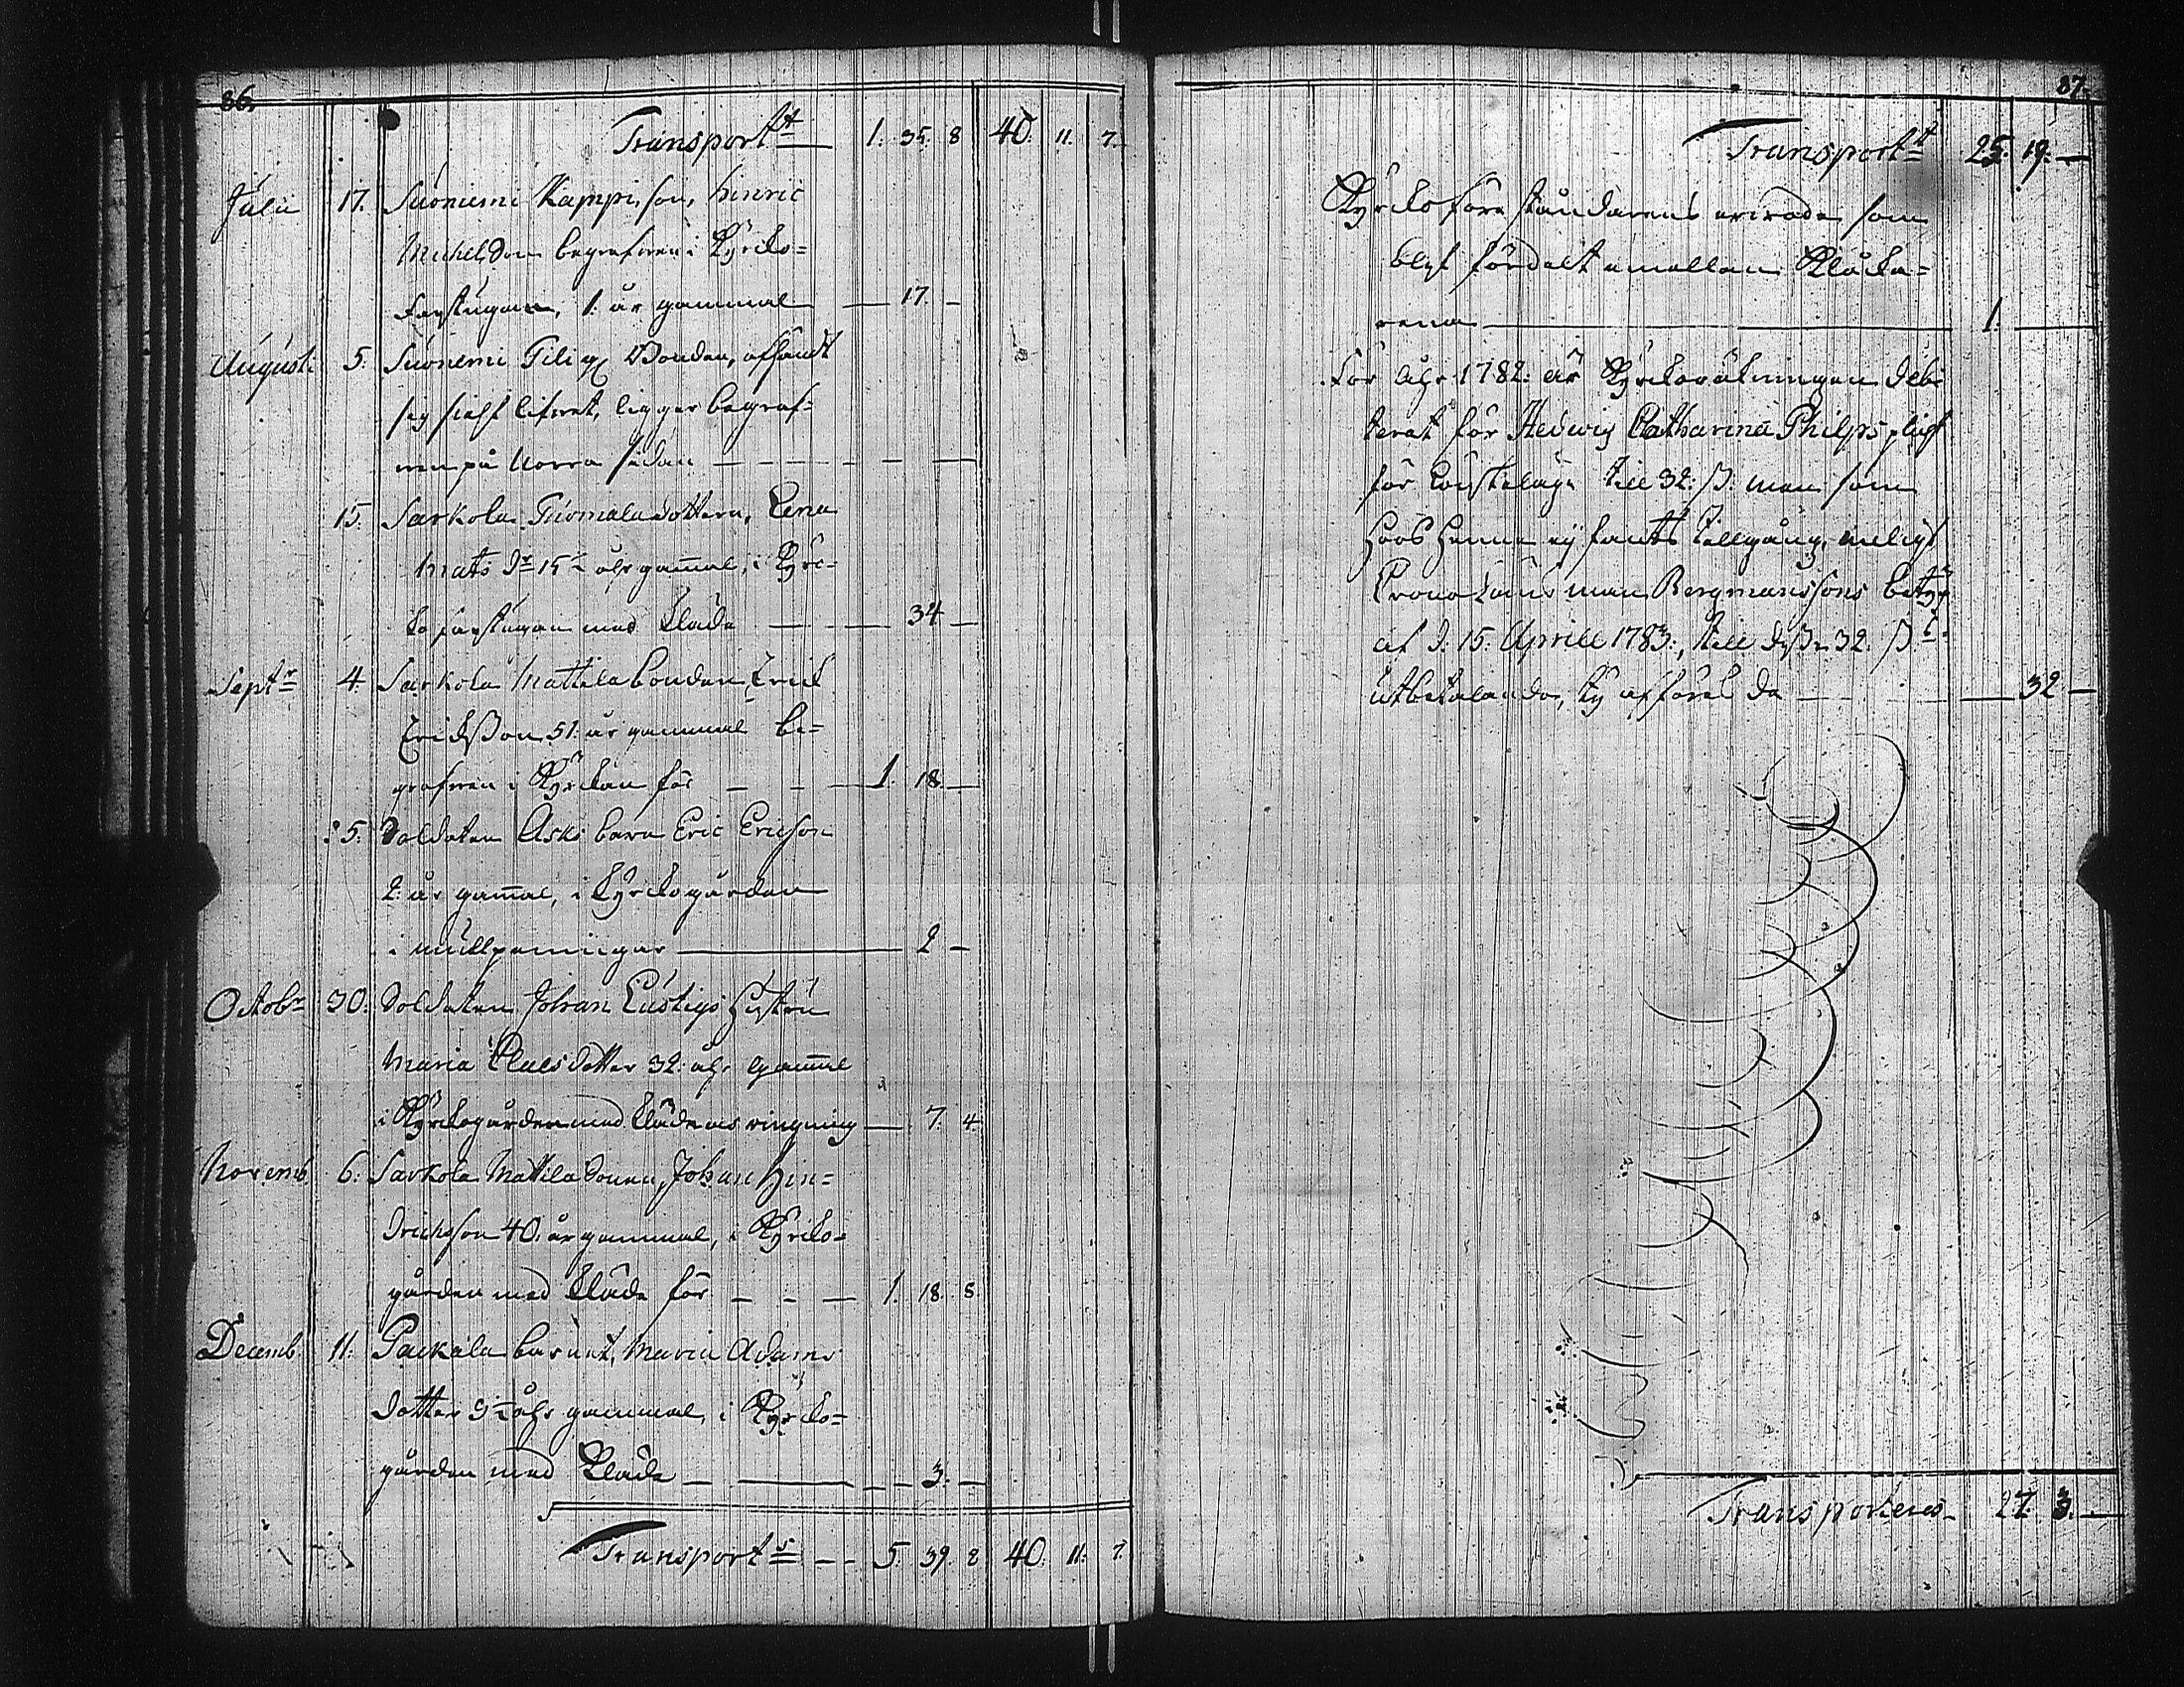 86.
Transport t 1. 35. 8 40. 11. 7.
Julii 17. Suoniemi Kappi, son, Hinric
Michelson begrafwen i Kyrko-
farstugan, 1. år gammal — 17. —
Augusti 5. Suoniemi Pili Bonden, afhändt
sig sielf lifwet, ligger begraf-
wen på Norra sidan — — — — —
15. Sarkola Tuomala dottern, Lena
Mats dr 15 åhr gam̄al, i Kyrc-
ko farstugan med Kläde — — 34 —
Septr 4. Sarkola Mattila bonden Erick
Erickßon 51. år gammal be-
grafwen i Kyrckan för — — 1. 18. —
5. Soldaten Asks barn Eric Ericson
2. år gam̄al, i Kyrckogården
i mullpenningar — 2 —
Octobr 30. Soldaten Johan Lustigs Hustru
Maria Claes dotter 32. åhr gam̄al
i Kyrckogården med Kläde ringning — 7. 4.
Novemb. 6. Sarkola Mattila Sonen, Johan Hin-
drichsson 40. år gammal, i Kyrcko-
gården med Kläde för — — — 1. 18. 8.
Decemb. 11. Packala barnet, Maria Adams
dotter 9 åhr gammal, i Kyrcko-
gården med Kläde — — — 3. —
Transport s — — 5. 39. 8 40. 11. 7.
87.
Transport t 25. 19. —
Kyrckoföreståndarens som
blef fördelt emellan Klåcka-
rena — 1. —
För åhr 1782. är Kyrckoräkningen debi
terat för Hedwig Catharina Philps
för till 32. ß. men som
hoos henne ej fants tillgång, enligt
Crono Länsman Bergmanssons betyg
af d. 15. Aprill 1783., till deße 32. ß
utbetalande, ty afföres de — — 32 —
Transporteras 27. 3. —